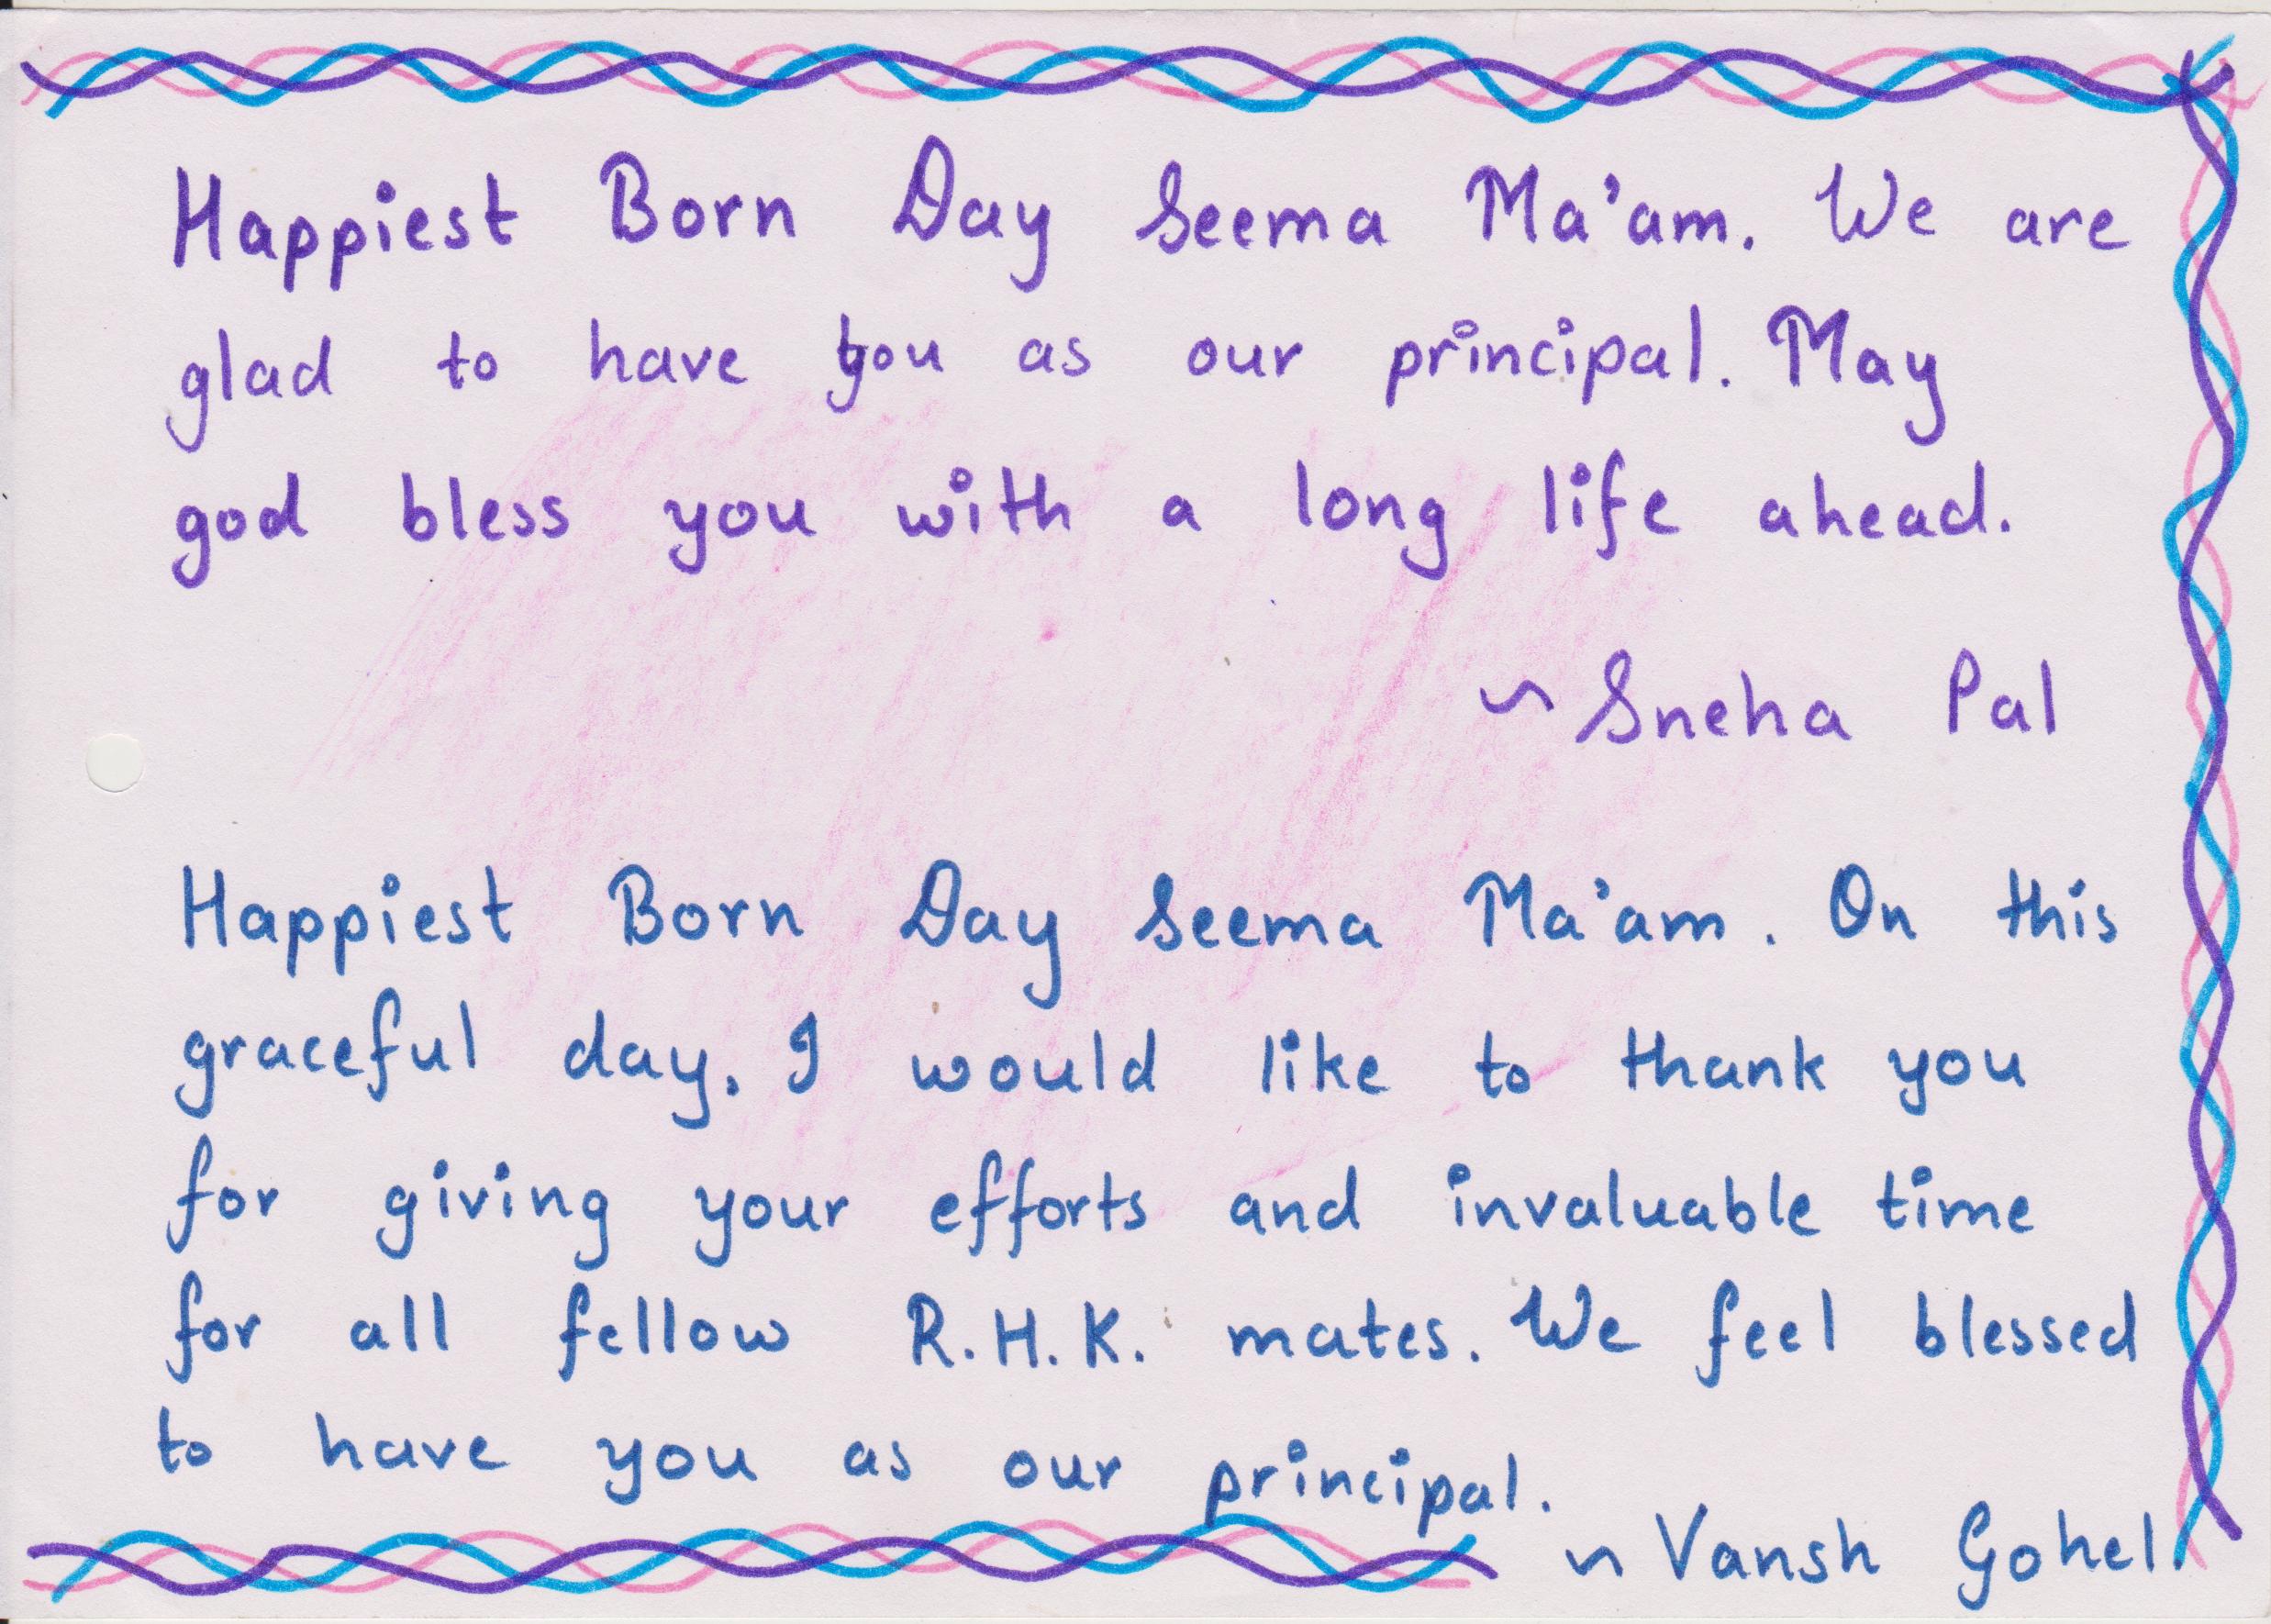 Happiest Born Day Seema Ma'am. We are
glad to have you as our principal. May
god bless you with a long life ahead.
~ Sneha Pal
Happiest Born Day Seema Ma'am. On this
graceful day, I would like to thank you
for giving your efforts and invaluable time
for all fellow R.H.K. mates. We feel blessed
to have you as our principal.
~ Vansh Gohel.